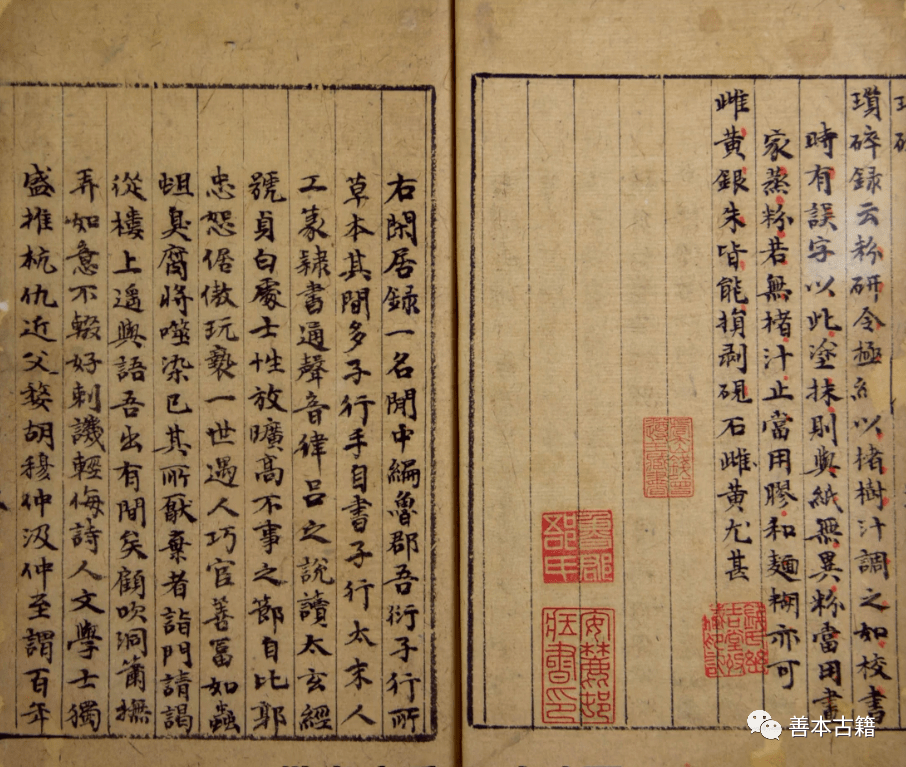 瑣碎録云粉研令極細以楮樹汁調之如校書
時有誤字以此塗抹則與紙無異粉當用書
家蒸粉若無楮汁止當用膠和麵糊亦可
雌黃銀朱皆能損剥硯石雌黃尤甚
錢氏幽吉堂收藏印記
安麓邨藏書印
右閑居録一名閒中編魯郡吾衍子行所
草本其間多子行手自書子行太末人
工篆隸書通聲音律呂之說讀太玄經
號貞白處士性放曠高不事之節自比郭
忠恕倨傲玩褻一世遇人巧宦善富如蟲
蛆臭腐將噬染已其所厭棄者詣門請謁
從樓上遥與語吾出有間矣顧吹洞簫撫
弄如意不輟好刺譏輕侮詩人文學士獨
盛推杭仇近父婺胡穆仲汲仲至謂百年
善本古籍